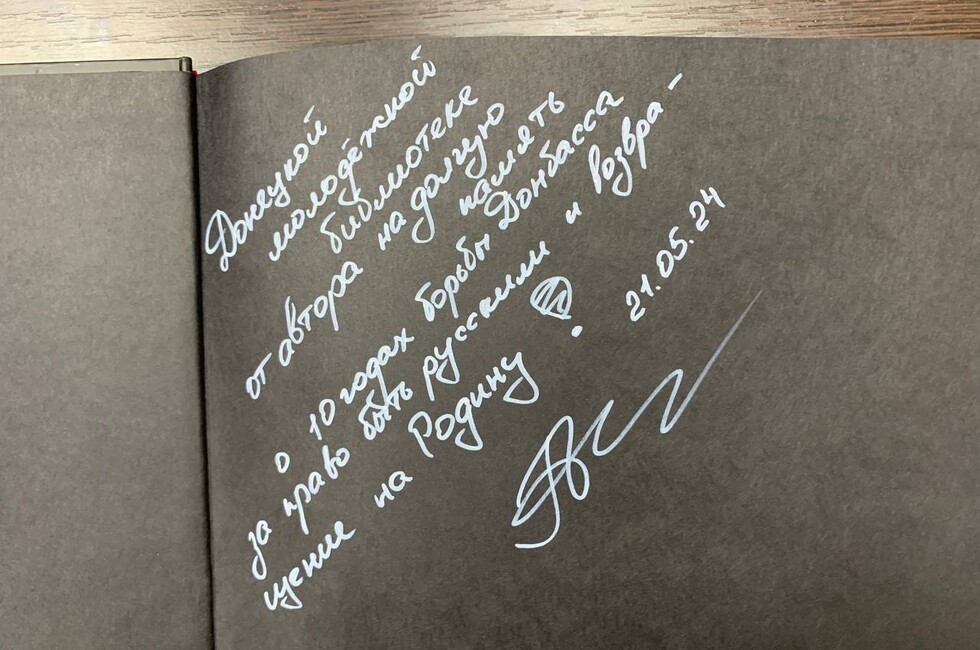 Донецкой
молодёжной
библиотеке
от автора на долгую
память
о 10 годах борьбы Донбасса
за право быть русскими и возвра-
щение на Родину!
21.05.24